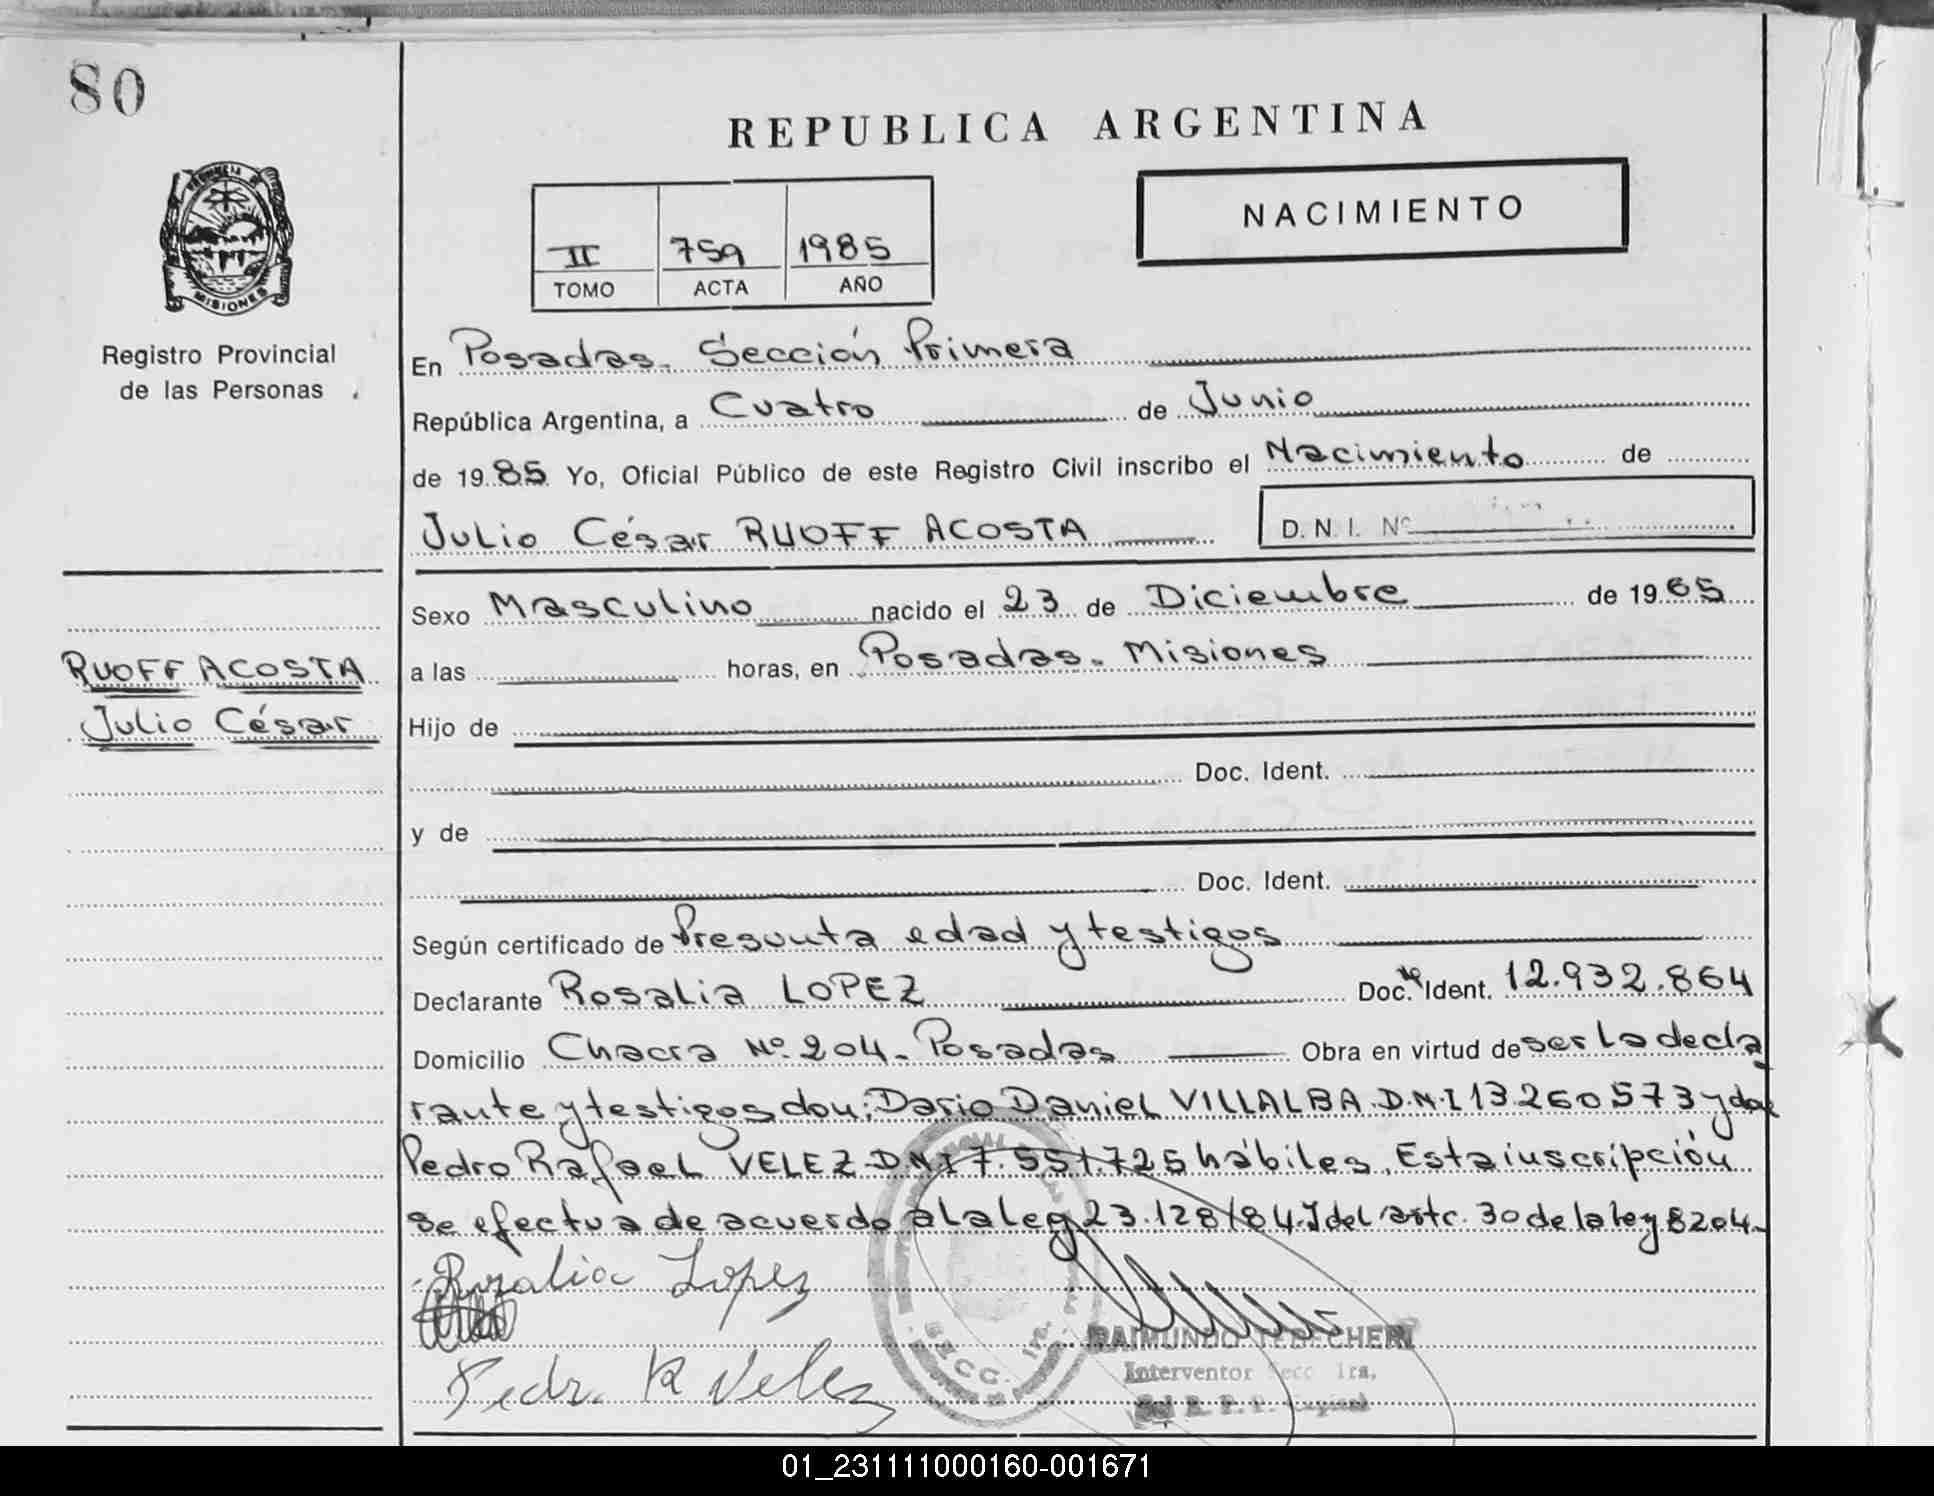 80
REPUBLICA ARGENTINA
NACIMIENTO
II 759 1985
TOMO ACTA AÑO
MISIONES
Registro Provincial
de las Personas
En Posadas. Sección Primera
República Argentina, a Cuatro de Junio
de 1985 Yo, Oficial Público de este Registro Civil inscribo el Nacimiento de
Julio César RUOFF ACOSTA D. N. I. Nº
Sexo Masculino nacido el 23 de Diciembre de 1965
RUOFF ACOSTA
Julio César
a las horas, en Posadas. Misiones
Hijo de
Doc. Ident.
y de
Doc. Ident.
Según certificado de Presunta edad y testigos
Declarante Rosalia LOPEZ Doc. Nº Ident. 12.932.864
Domicilio Chacra Nº 204. Posadas Obra en virtud de ser la decla
rante y testigos don: Dario Daniel VILLALBA D.N.I 13260573 y don
Pedro Rafael VELEZ D.N.I 7.551.725 hábiles. Esta inscripción
se efectua de acuerdo a la ley 23.128/84. Y del artc. 30 de la ley 8204.
Rozalia Lopez
Pedro R Velez
SECC. 1ra.
RAIMUNDO TEBECHERI
Interventor Secc 1ra.
del R. P. P. Capital
01_231111000160-001671